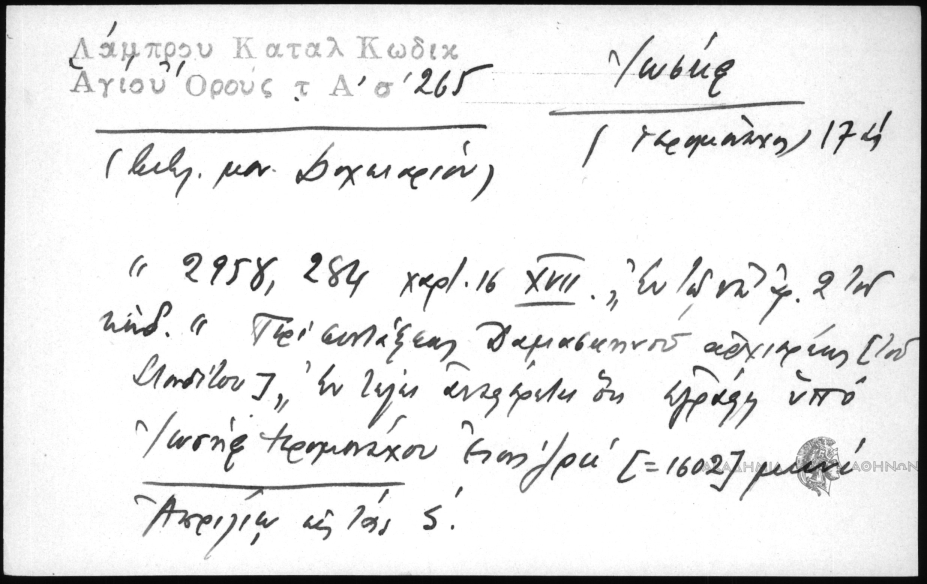 Λάμπρου Καταλ Κωδικ
Ἁγίου Ὄρους τ Α' σ' 265
Ἰωσήφ
(ἱερομόναχος) 17 αἰ
(βιβλ. μον. Δοχειαρίου)
" 2958, 284 χαρτ. 16 XVII. „Ἐν τῷ ὑπ' ἀρ. 2 τοῦ
κώδ. " Περὶ συντάξεως Δαμασκηνοῦ ἀρχιερέως [τοῦ
Στουδίτου] „ Ἐν τέλει ἀναφέρεται ὅτι ἐγράφη ὑπὸ
Ἰωσὴφ ἱερομονάχου ἔτους ͵ζρι' [=1602] μηνὶ
Ἀπριλίῳ εἰς τὰς 5.
ΑΚΑΔΗΜΙΑ ΑΘΗΝΩΝ